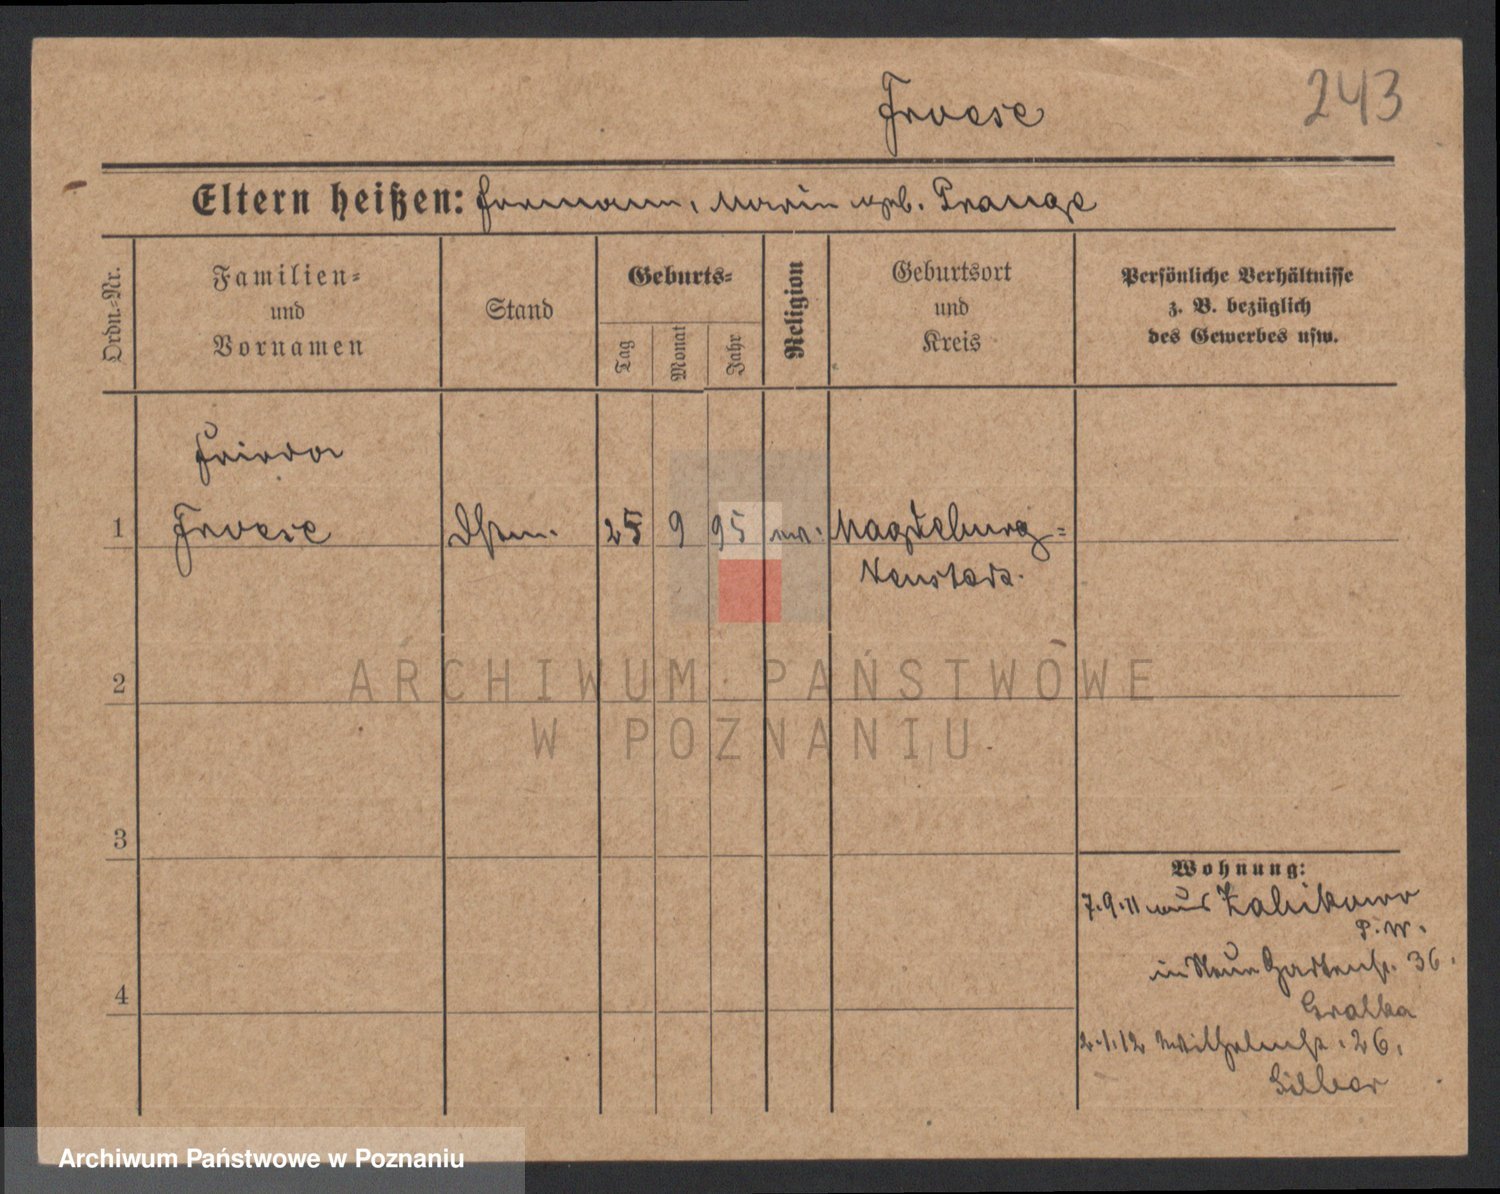 Froese
243
Eltern heißen: Hermann, Marie geb. Prange
Ordn.-Nr.
Familien-
und
Vornamen
Stand
Geburts-
Tag
Monat
Jahr
Religion
Geburtsort
und
Kreis
Persönliche Verhältnisse
z. B. bezüglich
des Gewerbes usw.
Frieda
1 Froese Dstm. 25 9 95 ev. Magdeburg-
Neustadt.
2
ARCHIWUM PAŃSTWOWE
W POZNANIU
3
Wohnung:
7.9.11 aus Zabikowo
P.W.
in Neue Gartenstr. 36.
4
Gralka
2.1.12 Wilhelmstr. 26.
Silber
Archiwum Państwowe w Poznaniu